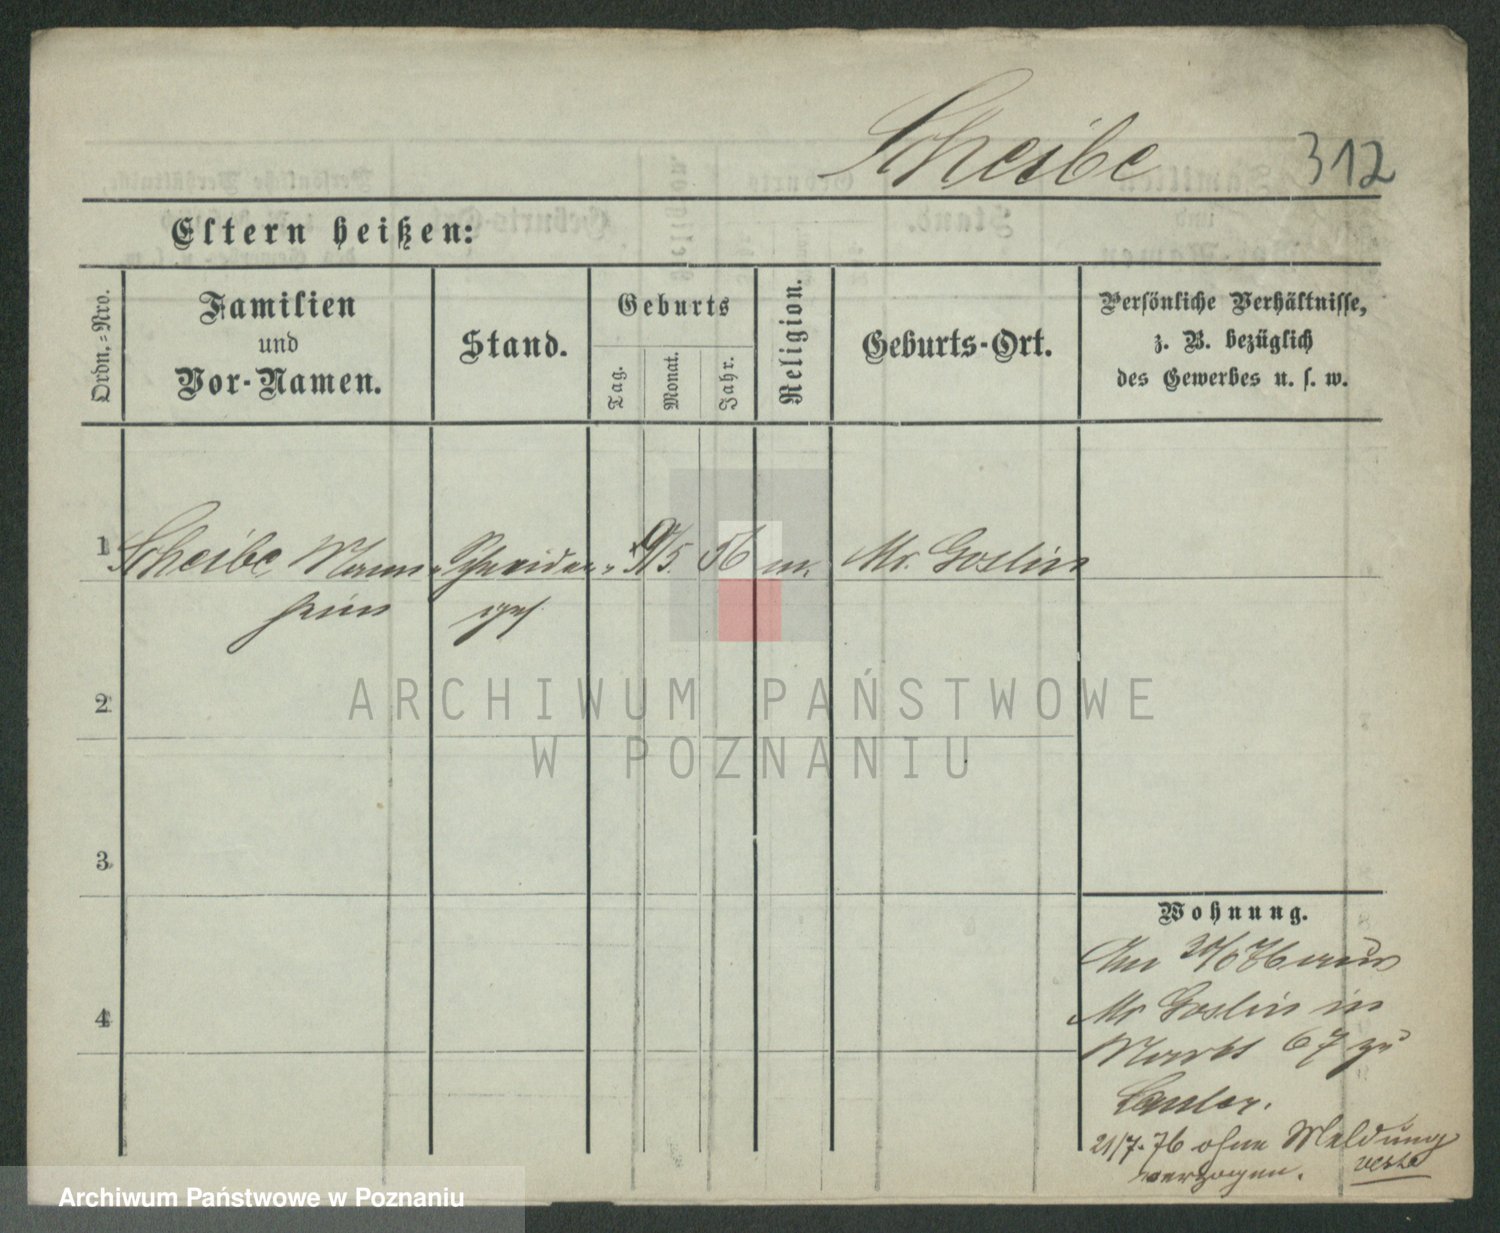 Scheibe 312
Eltern heißen:
Ordn.-Nro.
Familien
und
Vor-Namen.
Stand.
Geburts
Tag.
Monat.
Jahr.
Religion.
Geburts-Ort.
Persönliche Verhältnisse,
z. B. bezüglich
des Gewerbes u. s. w.
1 Scheibe Schneider- 9/5 56 m. Goslin
2
3
4
Wohnung.
Am 76 aus
Goslin in
Markt 67 zu
21/7.76 ohne Meldung
verzogen.
ARCHIWUM PAŃSTWOWE
W POZNANIU
Archiwum Państwowe w Poznaniu